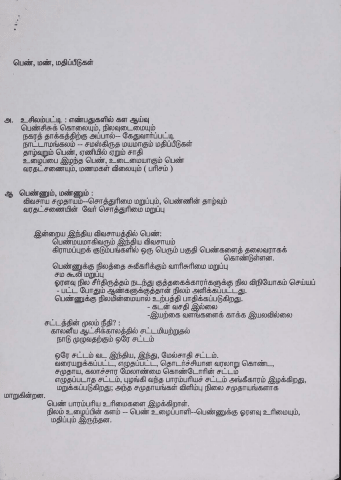 பெண், மண், மதிப்பீடுகள்
அ. உசிலம்பட்டி : எண்பதுகளில் கள ஆய்வு
பெண்சிசுக் கொலையும், நிலவுடைமையும்
நகரத் தாக்கத்திற்கு அப்பால்-- கேதுவார்பட்டி
நாட்டாமங்கலம் -- சமஸ்கிருத மயமாகும் மதிப்பீடுகள்
தாழ்வுறும் பெண், ஏணியில் ஏறும் சாதி
உழைப்பை இழந்த பெண், உடைமையாகும் பெண்
வரதட்சணையும், மணமகள் விலையும் ( பரிசம் )
ஆ பெண்ணும், மண்ணும் :
விவசாய சமுதாயம்--சொத்துரிமை மறுப்பும், பெண்ணின் தாழ்வும்
வரதட்சணையின் வேர் சொத்துரிமை மறுப்பு
இன்றைய இந்திய விவசாயத்தில் பெண்:
பெண்மயமாகிவரும் இந்திய விவசாயம்
கிராமப்புறக் குடும்பங்களில் ஒரு பெரும் பகுதி பெண்களைத் தலைவராகக்
கொண்டுள்ளன.
பெண்ணுக்கு நிலத்தை சுவீகரிக்கும் வாரிசுரிமை மறுப்பு
சம கூலி மறுப்பு
ஓரளவு நில சீர்திருத்தம் நடந்து குத்தகைக்காரர்களுக்கு நில வினியோகம் செய்யப்
- பட்ட போதும் ஆண்களுக்குத்தான் நிலம் அளிக்கப்பட்டது.
பெண்ணுக்கு நிலமின்மையால் உற்பத்தி பாதிக்கப்படுகிறது.
- கடன் வசதி இல்லை
-இயற்கை வளங்களைக் காக்க இயலவில்லை
சட்டத்தின் மூலம் நீதி? :
காலனிய ஆட்சிக்காலத்தில் சட்டமியற்றுதல்
நாடு முழுவதற்கும் ஒரே சட்டம்
ஒரே சட்டம் வட இந்திய, இந்து, மேல்சாதி சட்டம்.
வரையறுக்கப்பட்ட, எழுதப்பட்ட, தொடர்ச்சியான வரலாறு கொண்ட,
சமுதாய, கலாச்சார மேலாண்மை கொண்டோரின் சட்டம்
எழுதப்படாத சட்டம், பழங்கி வந்த பாரம்பரியச் சட்டம் அங்கீகாரம் இழக்கிறது,
மறுக்கப்படுகிறது; அந்த சமுதாயங்கள் விளிம்பு நிலை சமுதாயங்களாக
மாறுகின்றன.
பெண் பாரம்பரிய உரிமைகளை இழக்கிறாள்.
நிலம் உழைப்பின் களம் -- பெண் உழைப்பாளி--பெண்ணுக்கு ஓரளவு உரிமையும்,
மதிப்பும் இருந்தன.